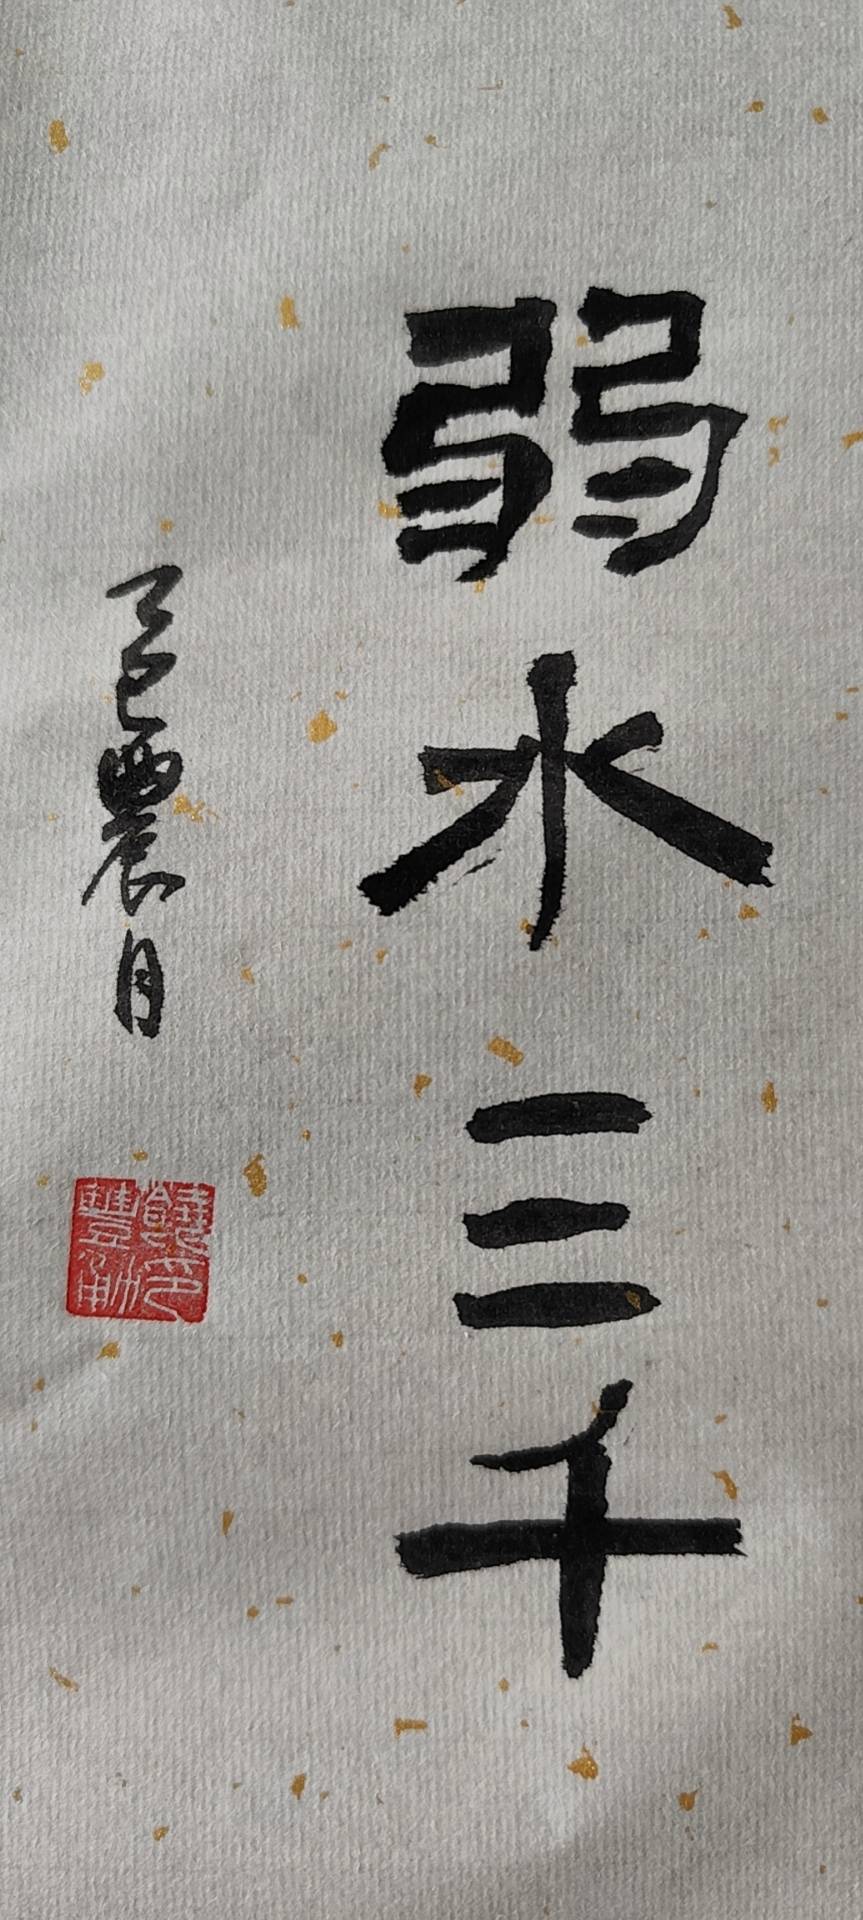 弱水三千
乙巳農月